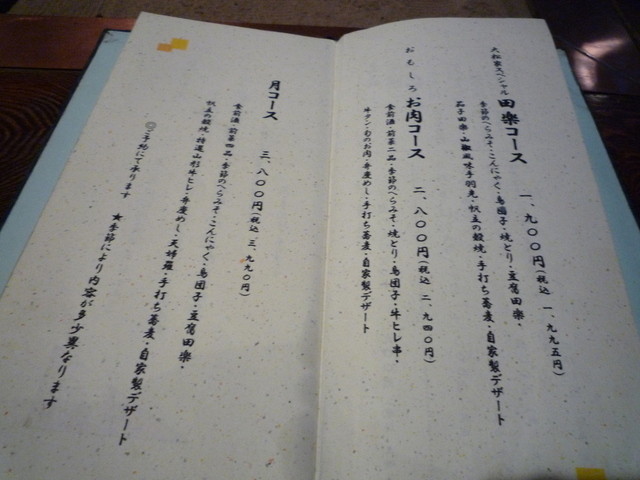 大松家スペシャル 田楽コース 一、九〇〇円(税込 一、九九五円)
季節のへらみそ・こんにゃく・鳥団子・焼とり・豆腐田楽・
茄子田楽・山椒風味手羽先・帆立の殻焼・手打ち蕎麦・自家製デザート
おもしろ お肉コース 二、八〇〇円(税込 二、九四〇円)
食前酒・前菜二品・季節のへらみそ・焼とり・鳥団子・牛ヒレ串・
牛タン・旬のお肉・弁慶めし・手打ち蕎麦・自家製デザート
月コース 三、八〇〇円(税込 三、九九〇円)
食前酒・前菜四品・季節のへらみそ・こんにゃく・鳥団子・豆腐田楽・
帆立の殻焼・特選山形牛ヒレ・弁慶めし・天婦羅・手打ち蕎麦・自家製デザート
◎ご予約にて承ります ★季節により内容が多少異なります